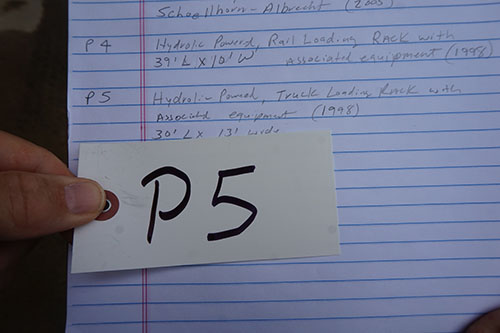 Schoellhorn-Albrecht (2005)
P4 Hydrolic Powered, Rail Loading Rack with
39' L X 10' W Associated equipment (1998)
P5 Hydrolic Powered, Truck Loading Rack with
Associated equipment (1998)
30' L X 13' wide
P5